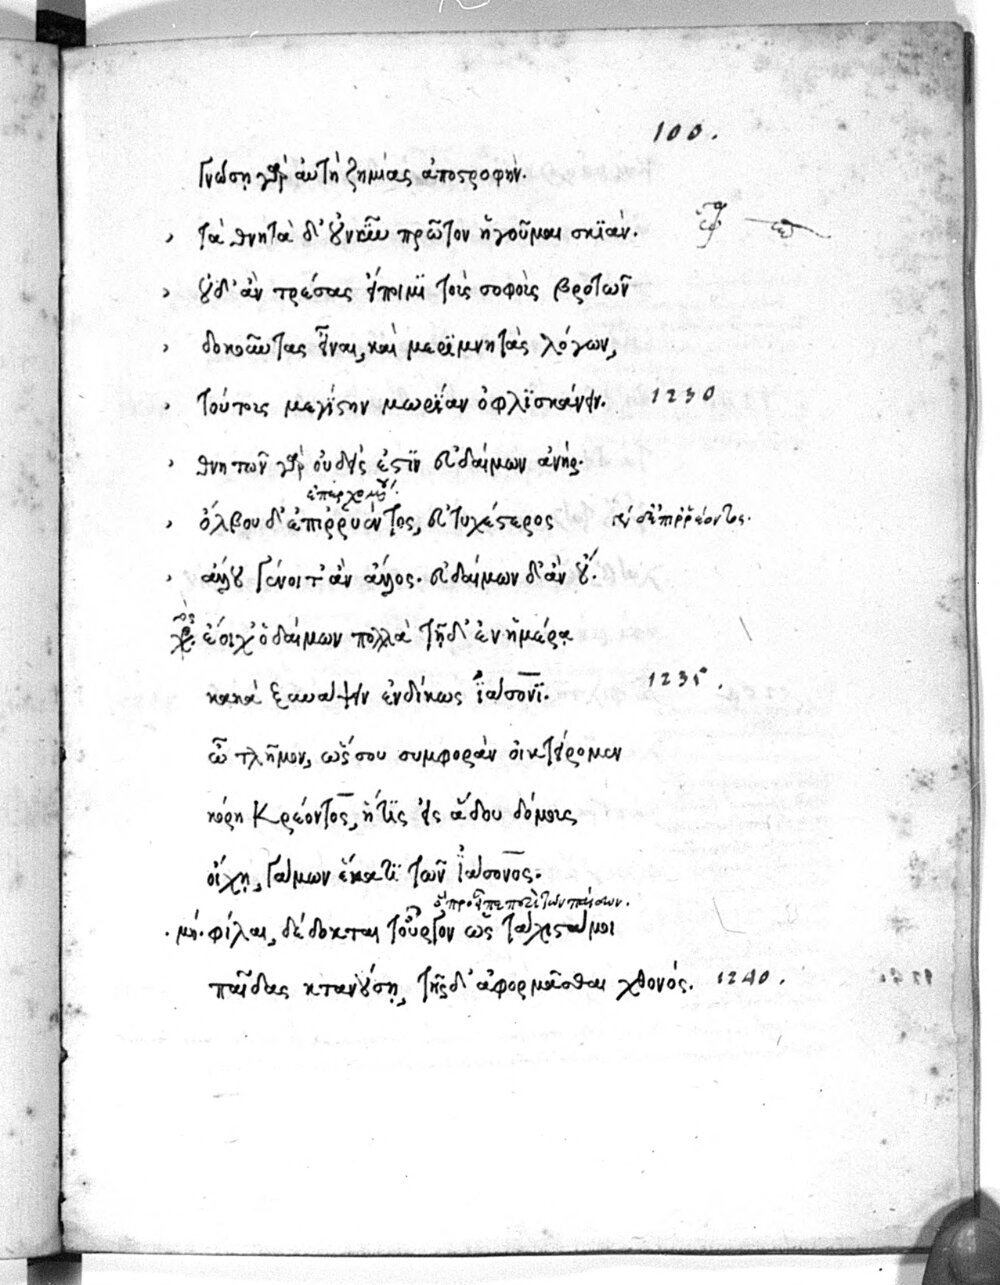 100.
γνώση γὰρ αὐτὴ ζημίας ἀποστροφήν.
τὰ θνητὰ δ' οὐ νῦν πρῶτον ἡγοῦμαι σκϊὰν.
οὐδ' ἂν τρέσας εἴποιμϊ τοὺς σοφοὺς βροτῶν
δοκοῦντας εἶναι, καὶ μερϊμνητὰς λόγων,
τούτοις μεγίστην μωρίαν ὀφλϊσκάνειν. 1230
θνητῶν γὰρ οὐδείς ἐστϊν εὐδαίμων ἀνήρ.
ἐπερχομένου.
ὄλβου δ' ἐπιρρυέντος, εὐτυχέστερος
ἄλλου γένοιτ' ἂν ἄλλος. εὐδαίμων δ' ἂν οὔ.
χορὸς. ἔοιχ' ὁ δαίμων πολλὰ τῇδ' ἐν ἡμέρᾳ
κακὰ ξυνάψειν ἐνδίκως ϊάσονϊ. 1235.
ὦ τλῆμον, ὥς σου συμφορὰν οἰκτείρομεν
κόρη Κρέοντος, ἥτϊς εἰς ᾅδου δόμους
οἴχῃ, γάμων ἕκατϊ τῶν ϊάσονος.
μή. φίλαι, δέδοκται τοὖργον ὡς τάχιστά μοι
παῖδας κτανούσῃ, τῆσδ' ἀφορμᾶσθαι χθονός. 1240.